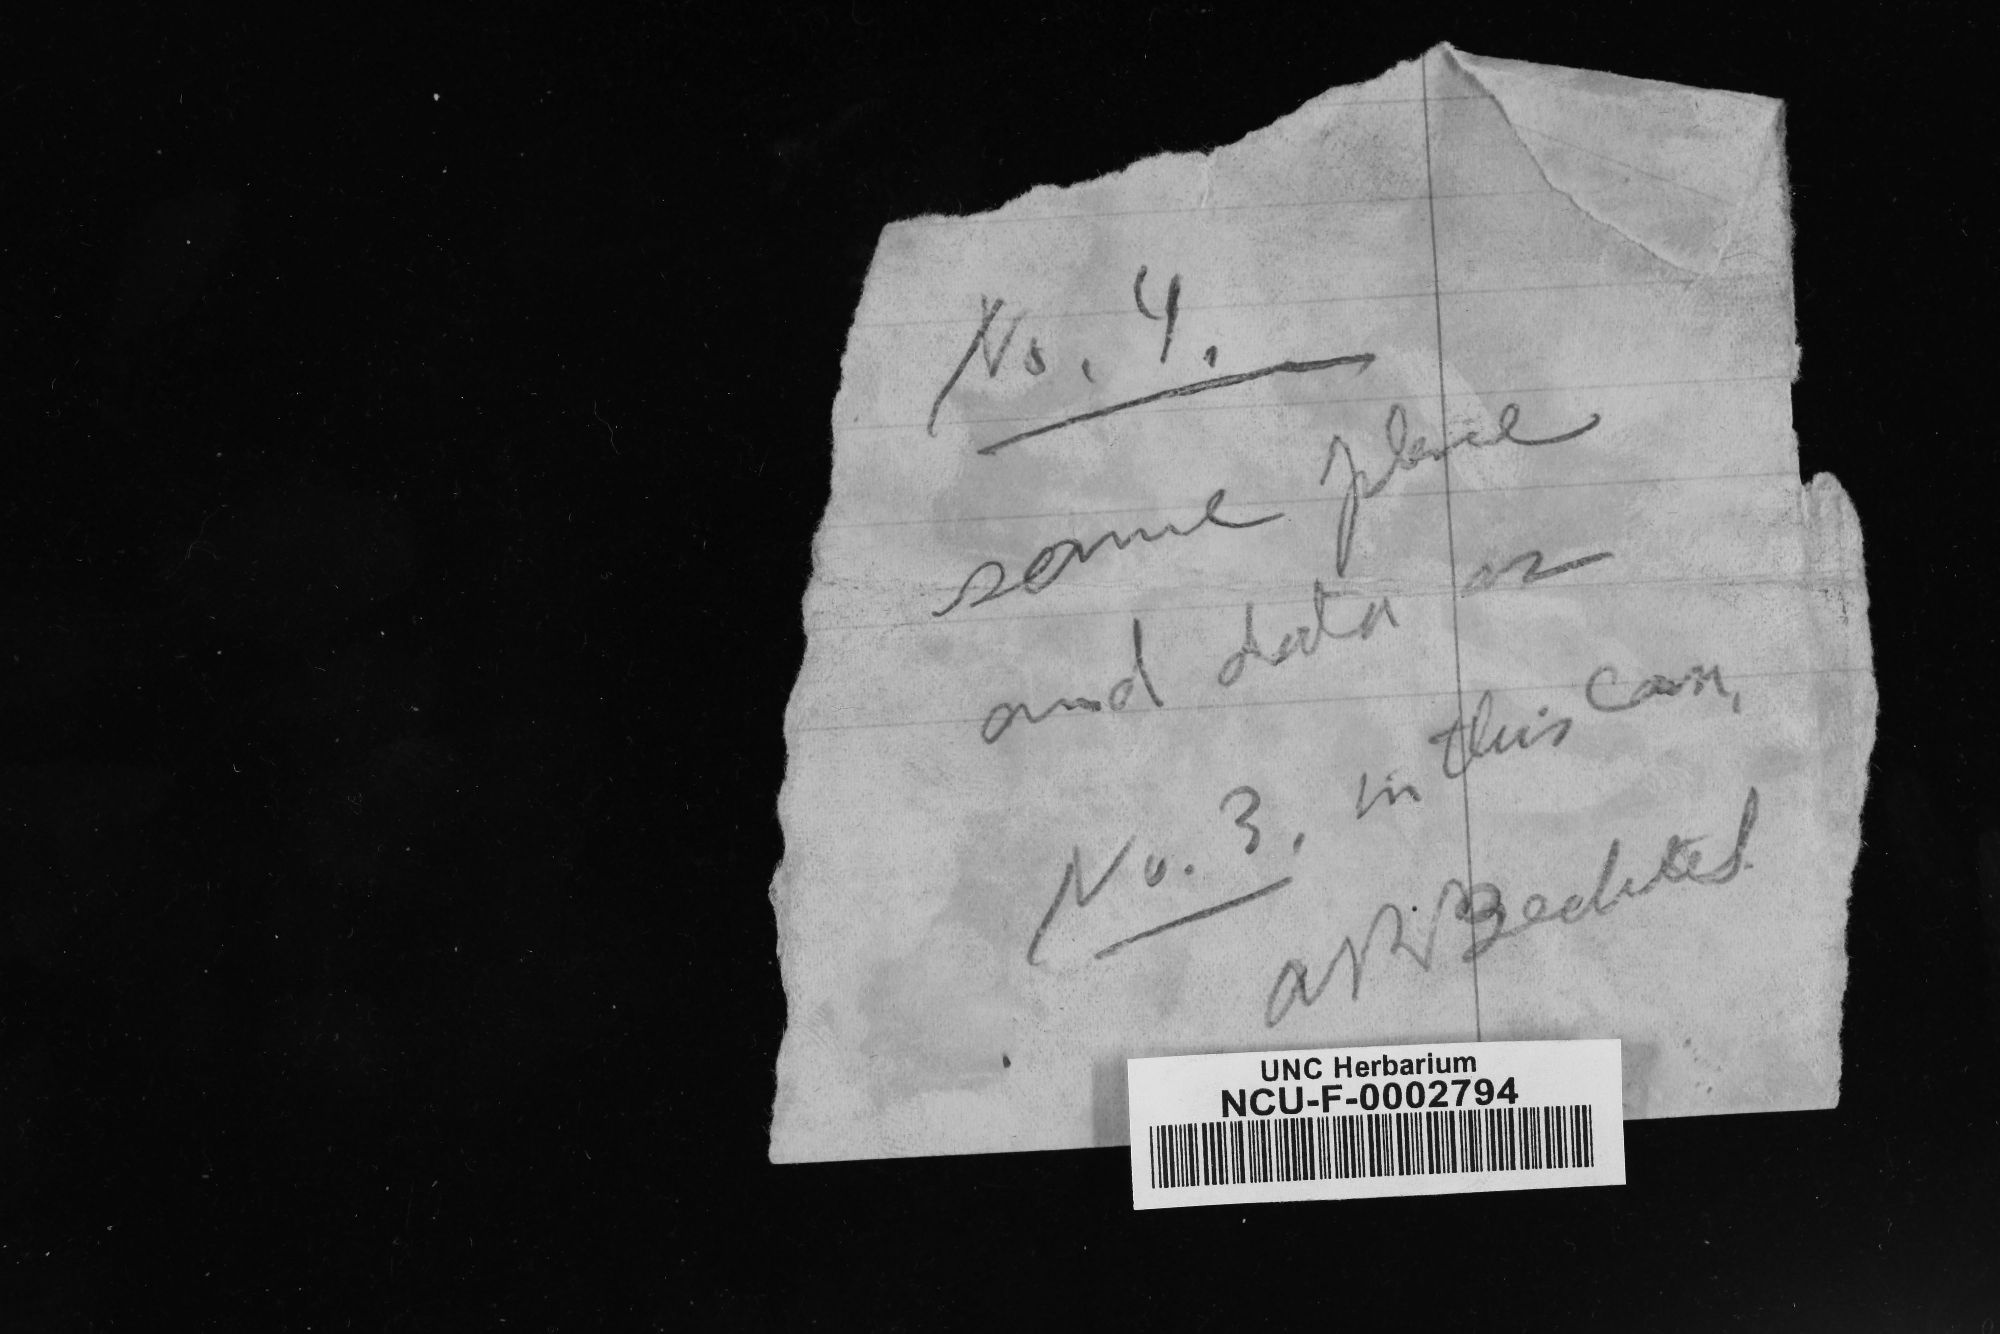 No. 4.
same place
and data as
No. 3. in this can,
A R Bechtel
UNC Herbarium
NCU-F-0002794